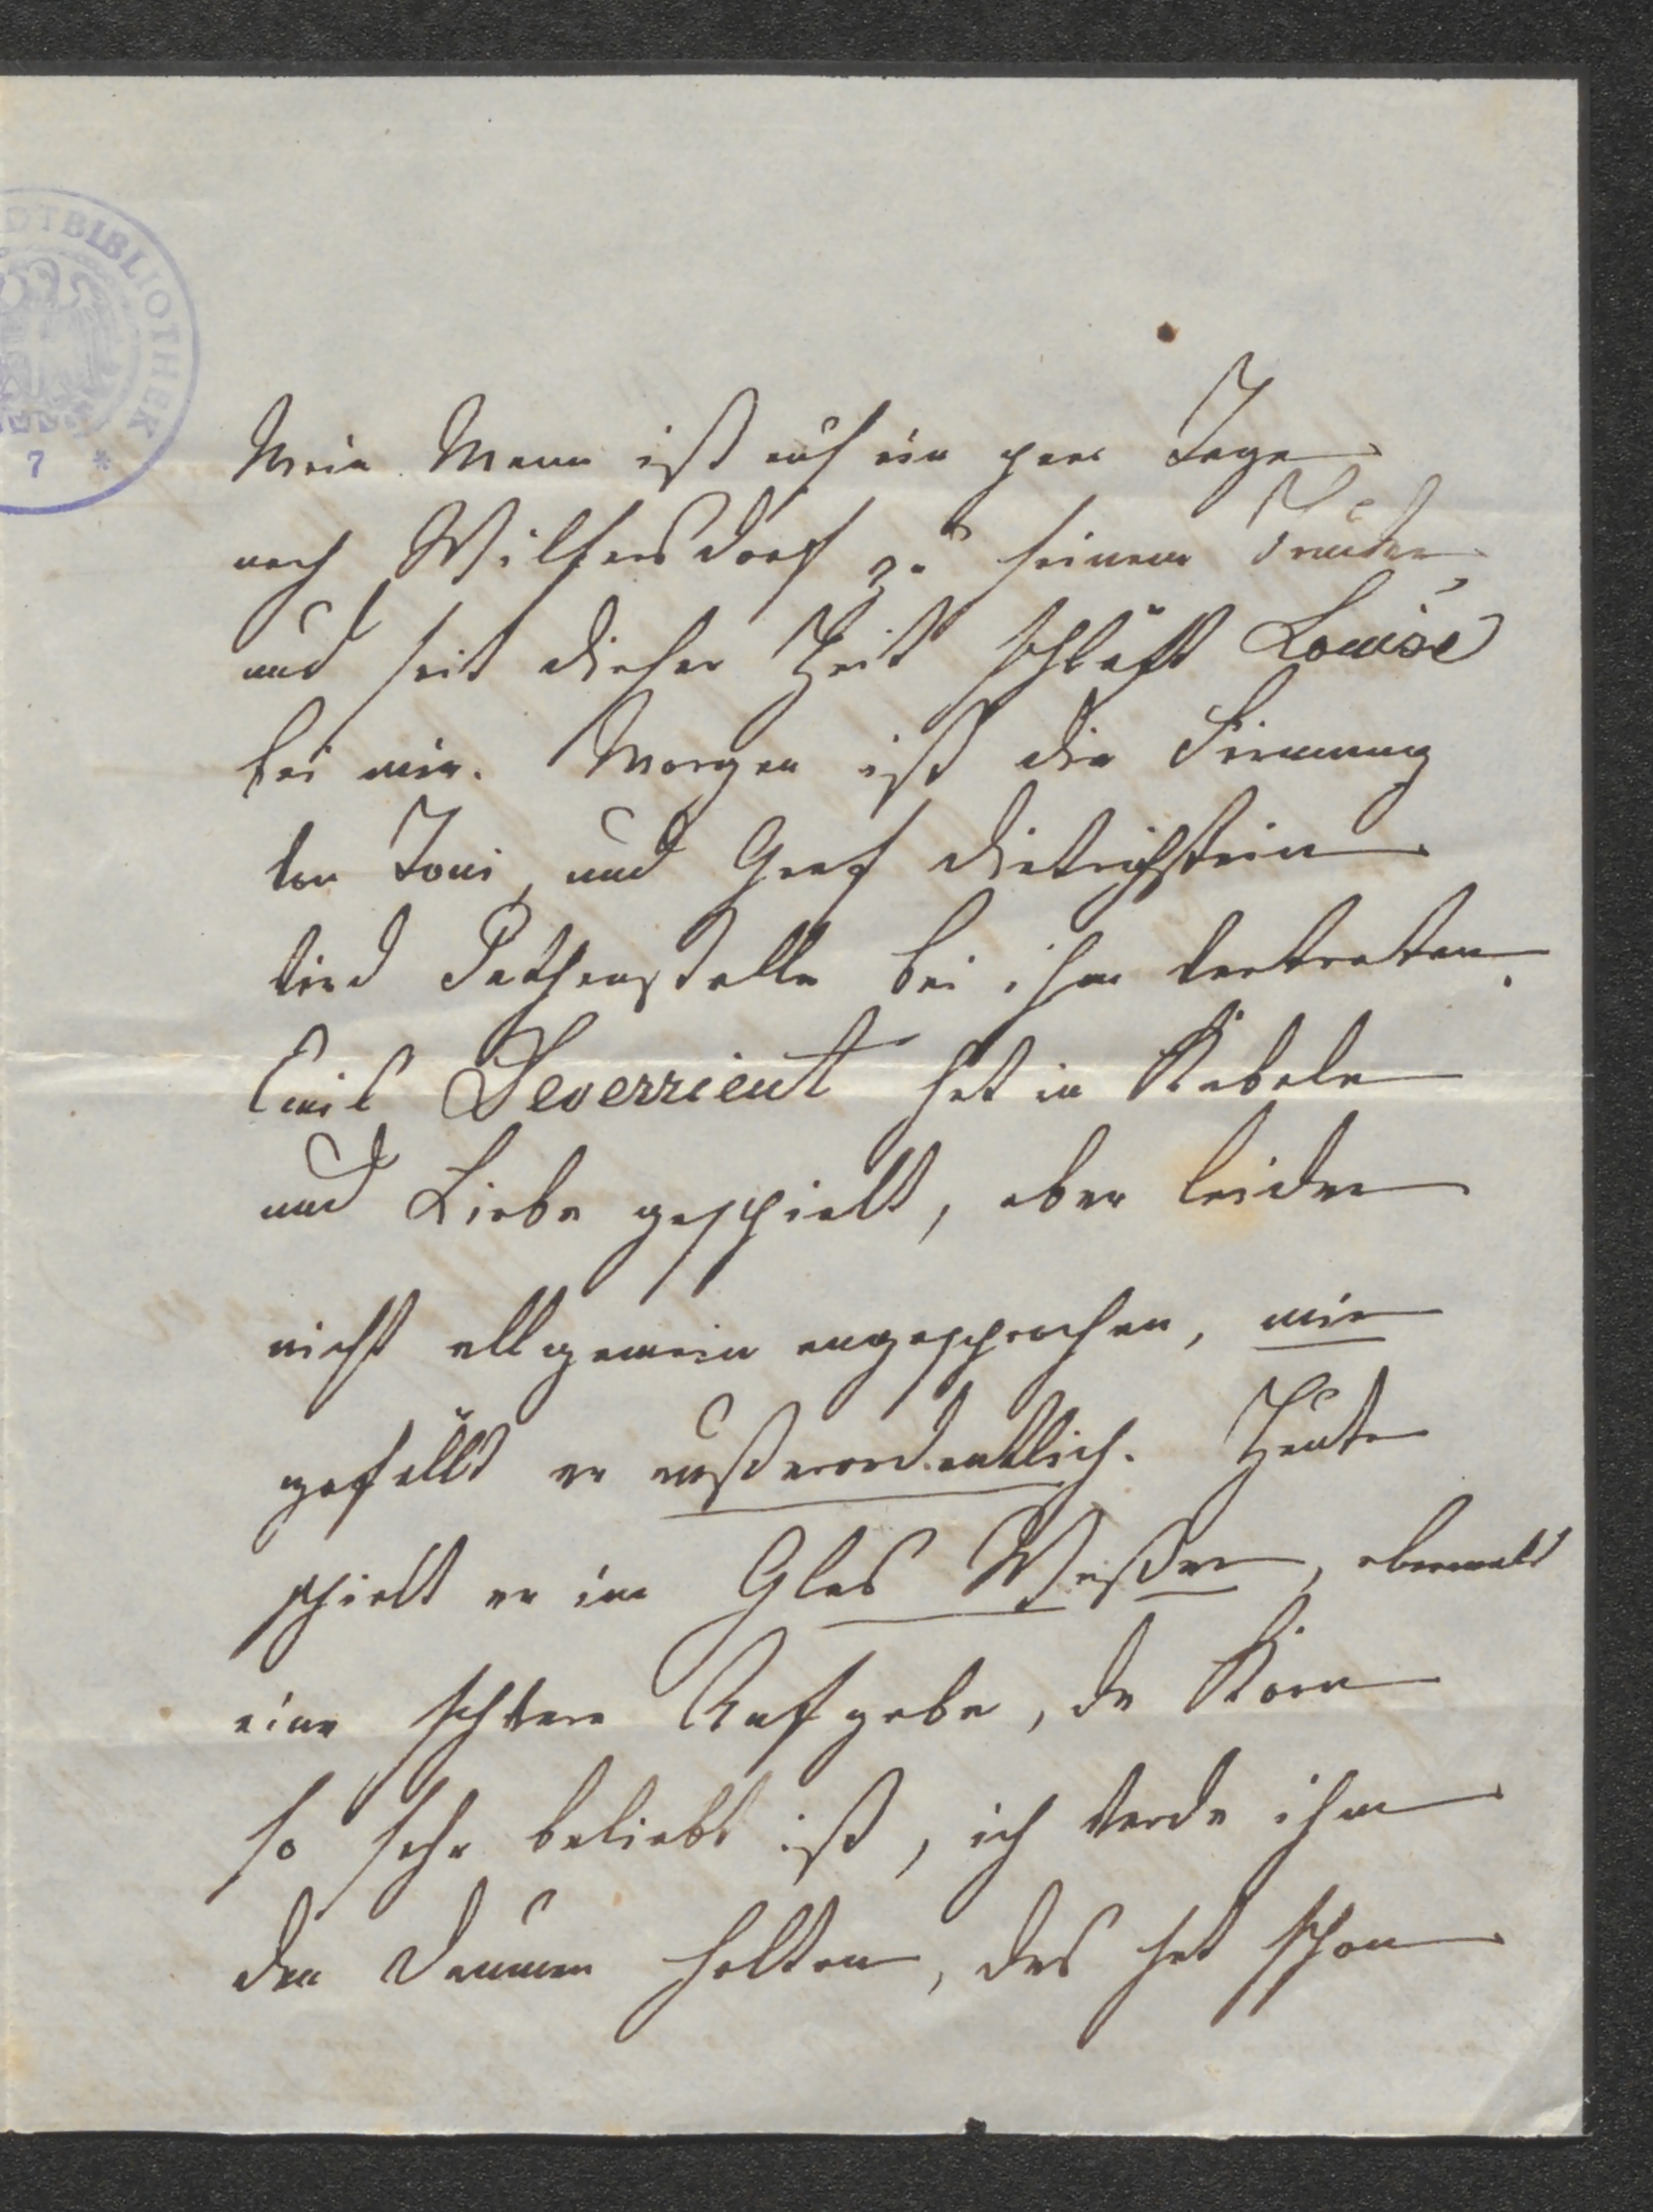 DTBIBLIOTHEK
7 *
Mein Mann ist auf ein paar Tage
nach Wilfersdorf zu seinem Bruder
und seit dieser Zeit schläft Louise
bei mir. Morgen ist die Firmung
von Toni, und Graf Dietrichstein
wird Pathenstelle bei ihm vertreten.
Emil Devrient hat in Kabale
und Liebe gespielt, aber leider
nicht allgemein angesprochen, mir
gefällt er außerordentlich. Heute
spielt er im Glas Wasser, abermals
eine schwere Aufgabe, da Korn
so sehr beliebt ist, ich werde ihm
den Daumen halten, das hat schon